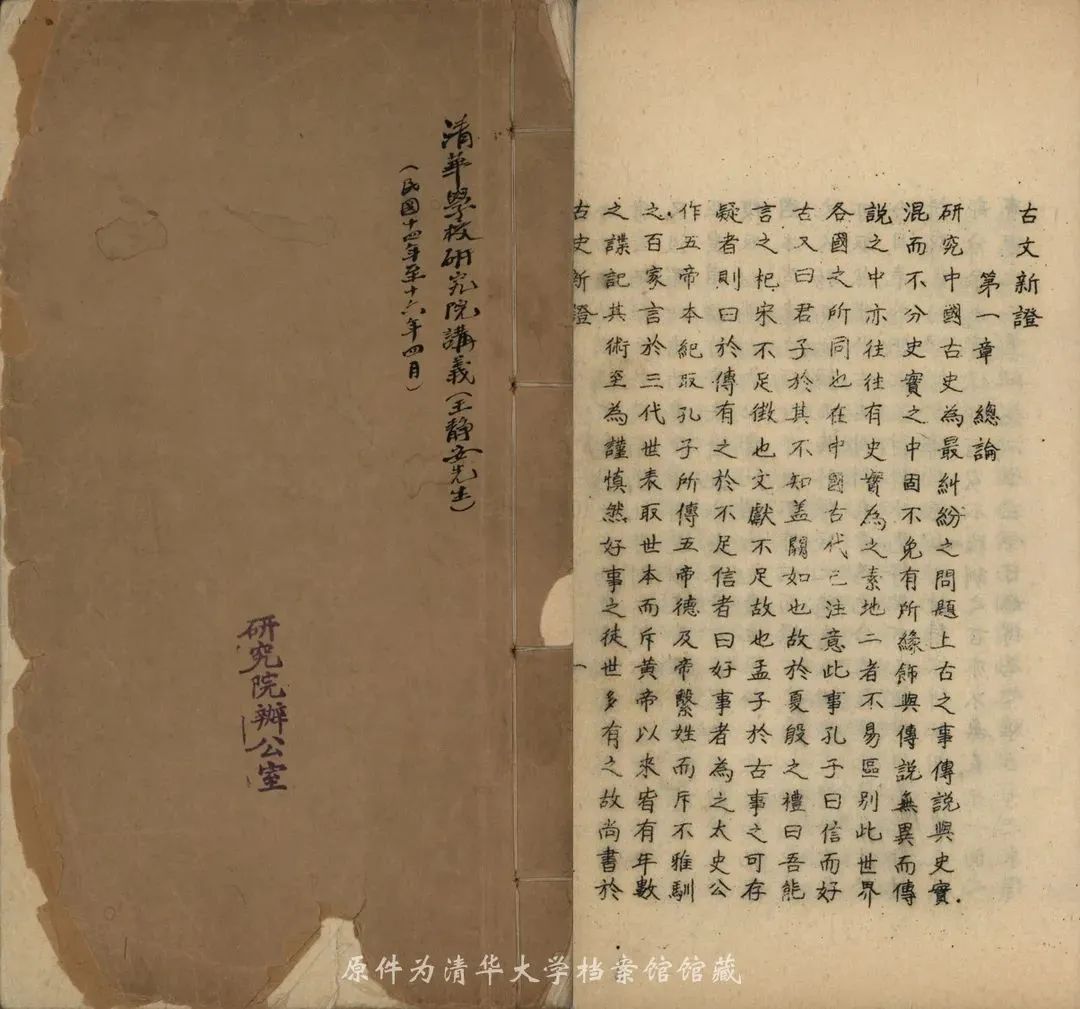 清華學校研究院講義(王靜安先生)
(民國十四年至十六年四月)
研究院辦公室
古文新證
第一章 總論
研究中國古史為最糾紛之問題上古之事傳說與史實
混而不分史實之中固不免有所緣飾與傳說無異而傳
說之中亦往往有史實為之素地二者不易區別此世界
各國之所同也在中國古代已注意此事孔子曰信而好
古又曰君子於其不知蓋闕如也故於夏殷之禮曰吾能
言之杞宋不足徵也文獻不足故也孟子於古事之可存
疑者則曰於傳有之於不足信者曰好事者為之太史公
作五帝本紀取孔子所傳五帝德及帝繫姓而斥不雅馴
之百家言於三代世表取世本而斥黃帝以來皆有年數
之諜記其術至為謹慎然好事之徒世多有之故尚書於
古史新證 一
原件为清华大学档案馆馆藏